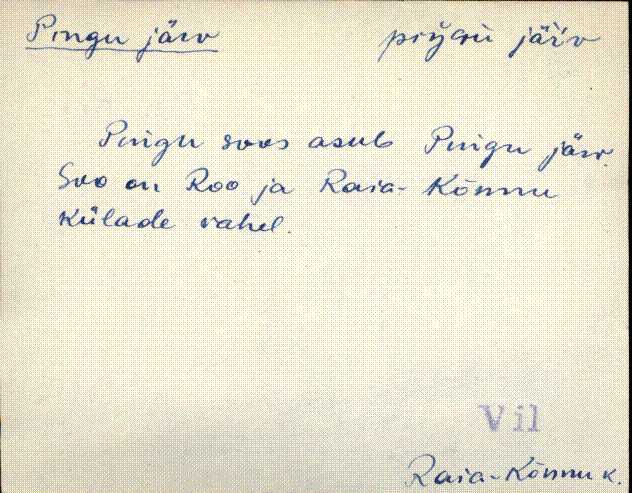 Pingu järv
piŋGu jäŕv
Pingu soos asub Pingu järv.
Soo on Roo ja Raia-Kõnnu
külade vahel.
Vil
Raia-Kõnnu k.